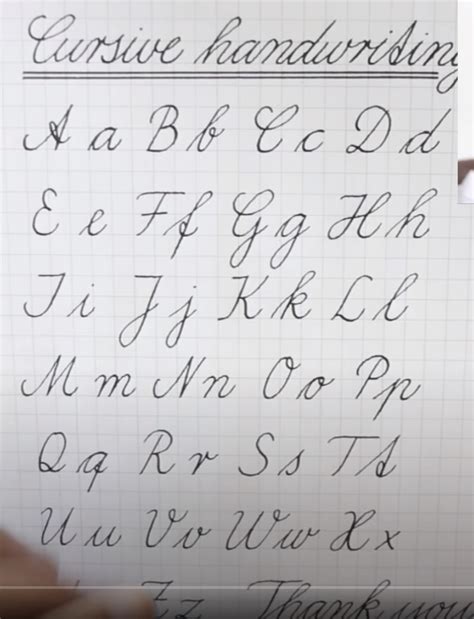 Cursive handwriting
A a B b C c D d
E e F f G g H h
I i J j K k L l
M m N n O o P p
Q q R r S s T t
U u V v W w X x
Z z Thank you